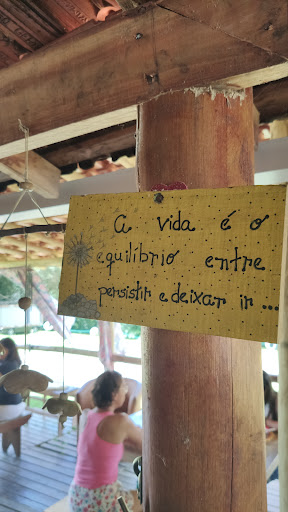 A vida é o
equilíbrio entre
persistir e deixar ir ...